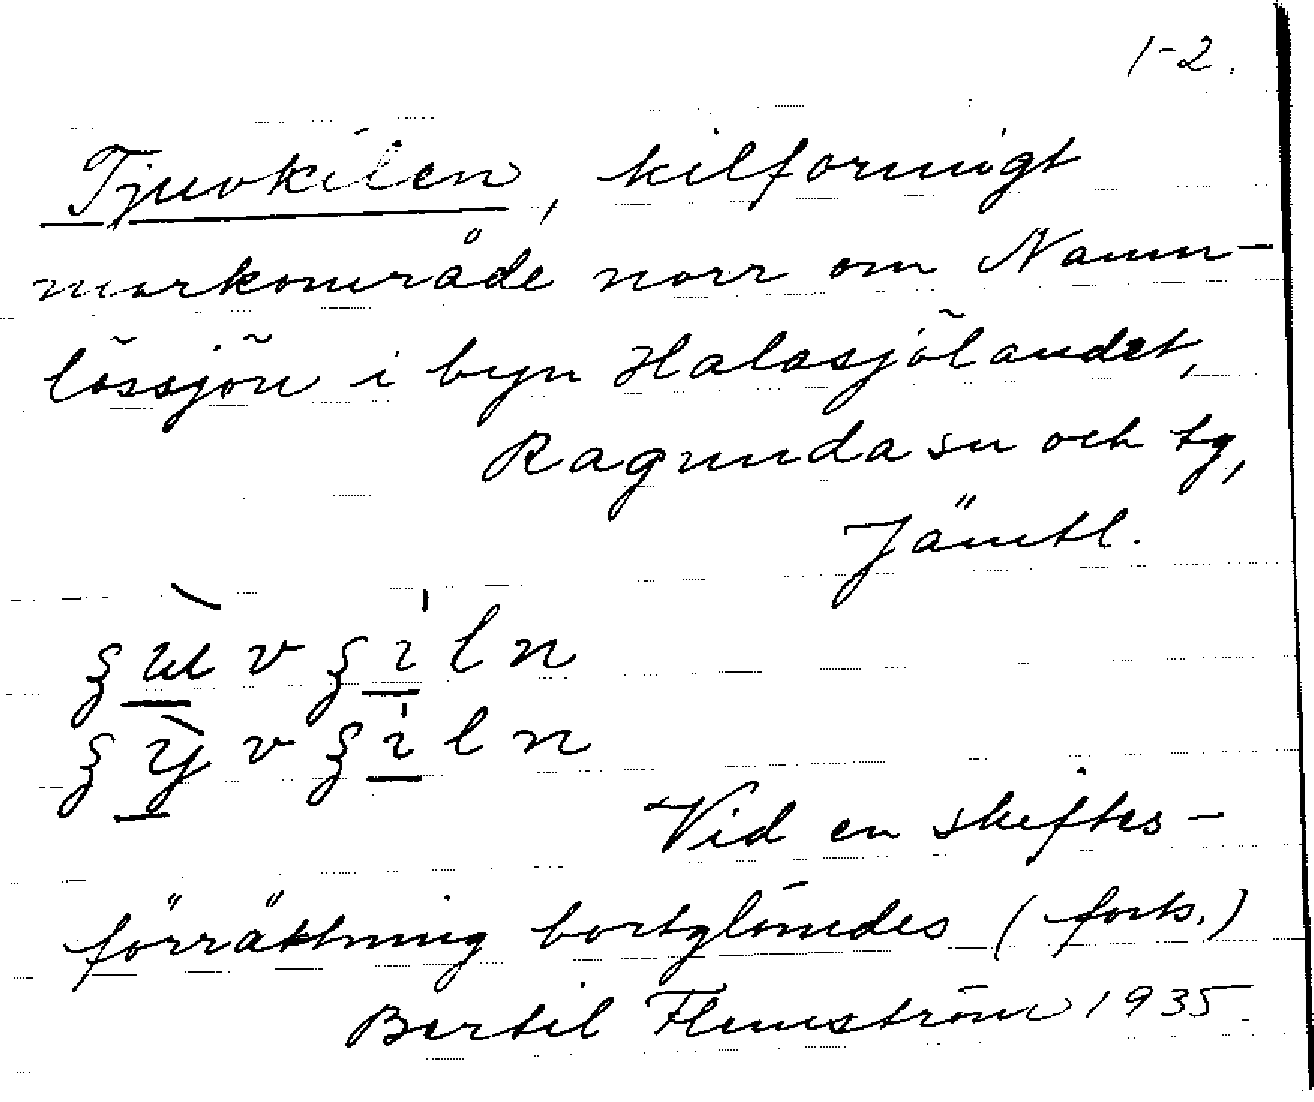 1-2.
Tjuvkilen, kilformigt
markområde norr om Namn-
lössjön i byn Halasjölandet,
Ragunda sn och tg,
Jämtl.
Vid en skiftes-
förrättning bortglömdes (forts.)
Bertil Flemström 1935